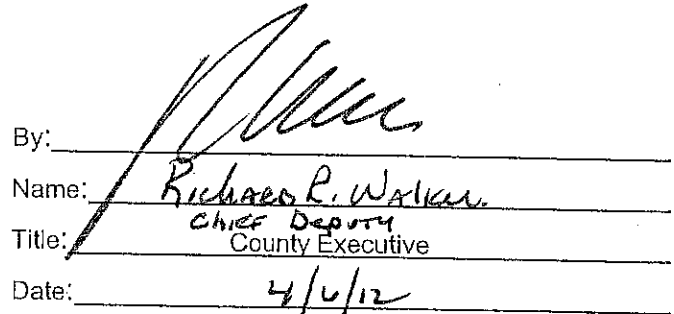 By:
Name: Richard R. Walker
CHIEF DEPUTY
Title: County Executive
Date: 4/6/12